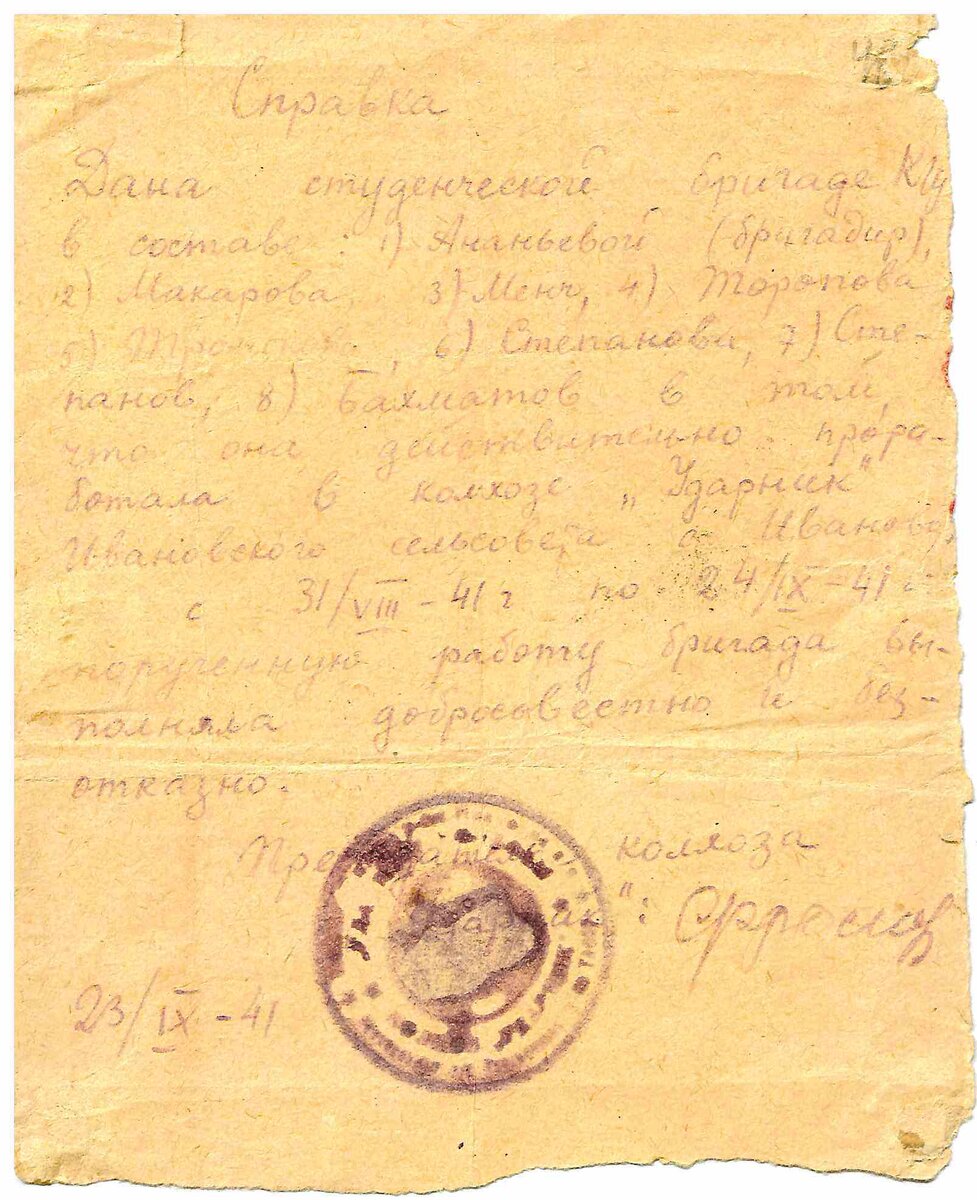 Справка
Дана студенческой бригаде КГУ
в составе: 1) Ананьевой (бригадир),
2) Макарова, 3) Менч, 4) Торопова
5) 6) Степанова, 7) Сте-
панов, 8) Бахматов в том,
что она действительно прора-
ботала в колхозе „Ударник"
Ивановского сельсовета с. Иваново,
с 31/VIII - 41 г по 24/IX - 41 г.
порученную работу бригада вы-
полняла добросовестно и без-
отказно.
Председатель колхоза
„Ударник":
23/IX - 41